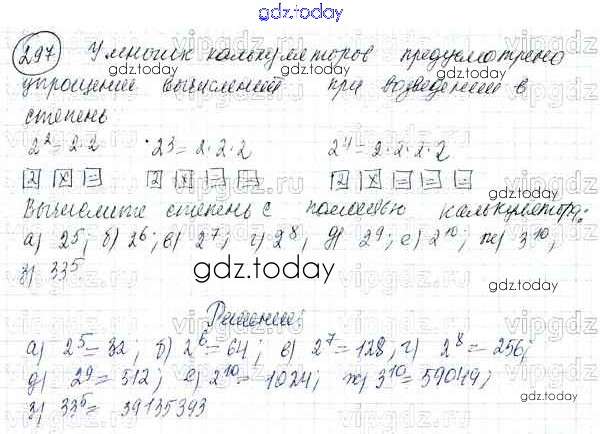 gdz.today
297 У многих калькуляторов предусмотрено
gdz.today
упрощение вычислений при возведении в
степень
2² = 2·2 2³ = 2·2·2 2⁴ = 2·2·2·2
2 x = 2 x = = 2 x = = =
gdz.today
Вычислите степень с помощью калькулятора:
а) 2⁵; б) 2⁶; в) 2⁷; г) 2⁸, д) 2⁹; е) 2¹⁰; ж) 3¹⁰;
з) 33⁵
gdz.today
Решение:
а) 2⁵ = 32; б) 2⁶ = 64; в) 2⁷ = 128, г) 2⁸ = 256;
д) 2⁹ = 512; е) 2¹⁰ = 1024; ж) 3¹⁰ = 59049;
з) 33⁵ = 39135393
gdz.today